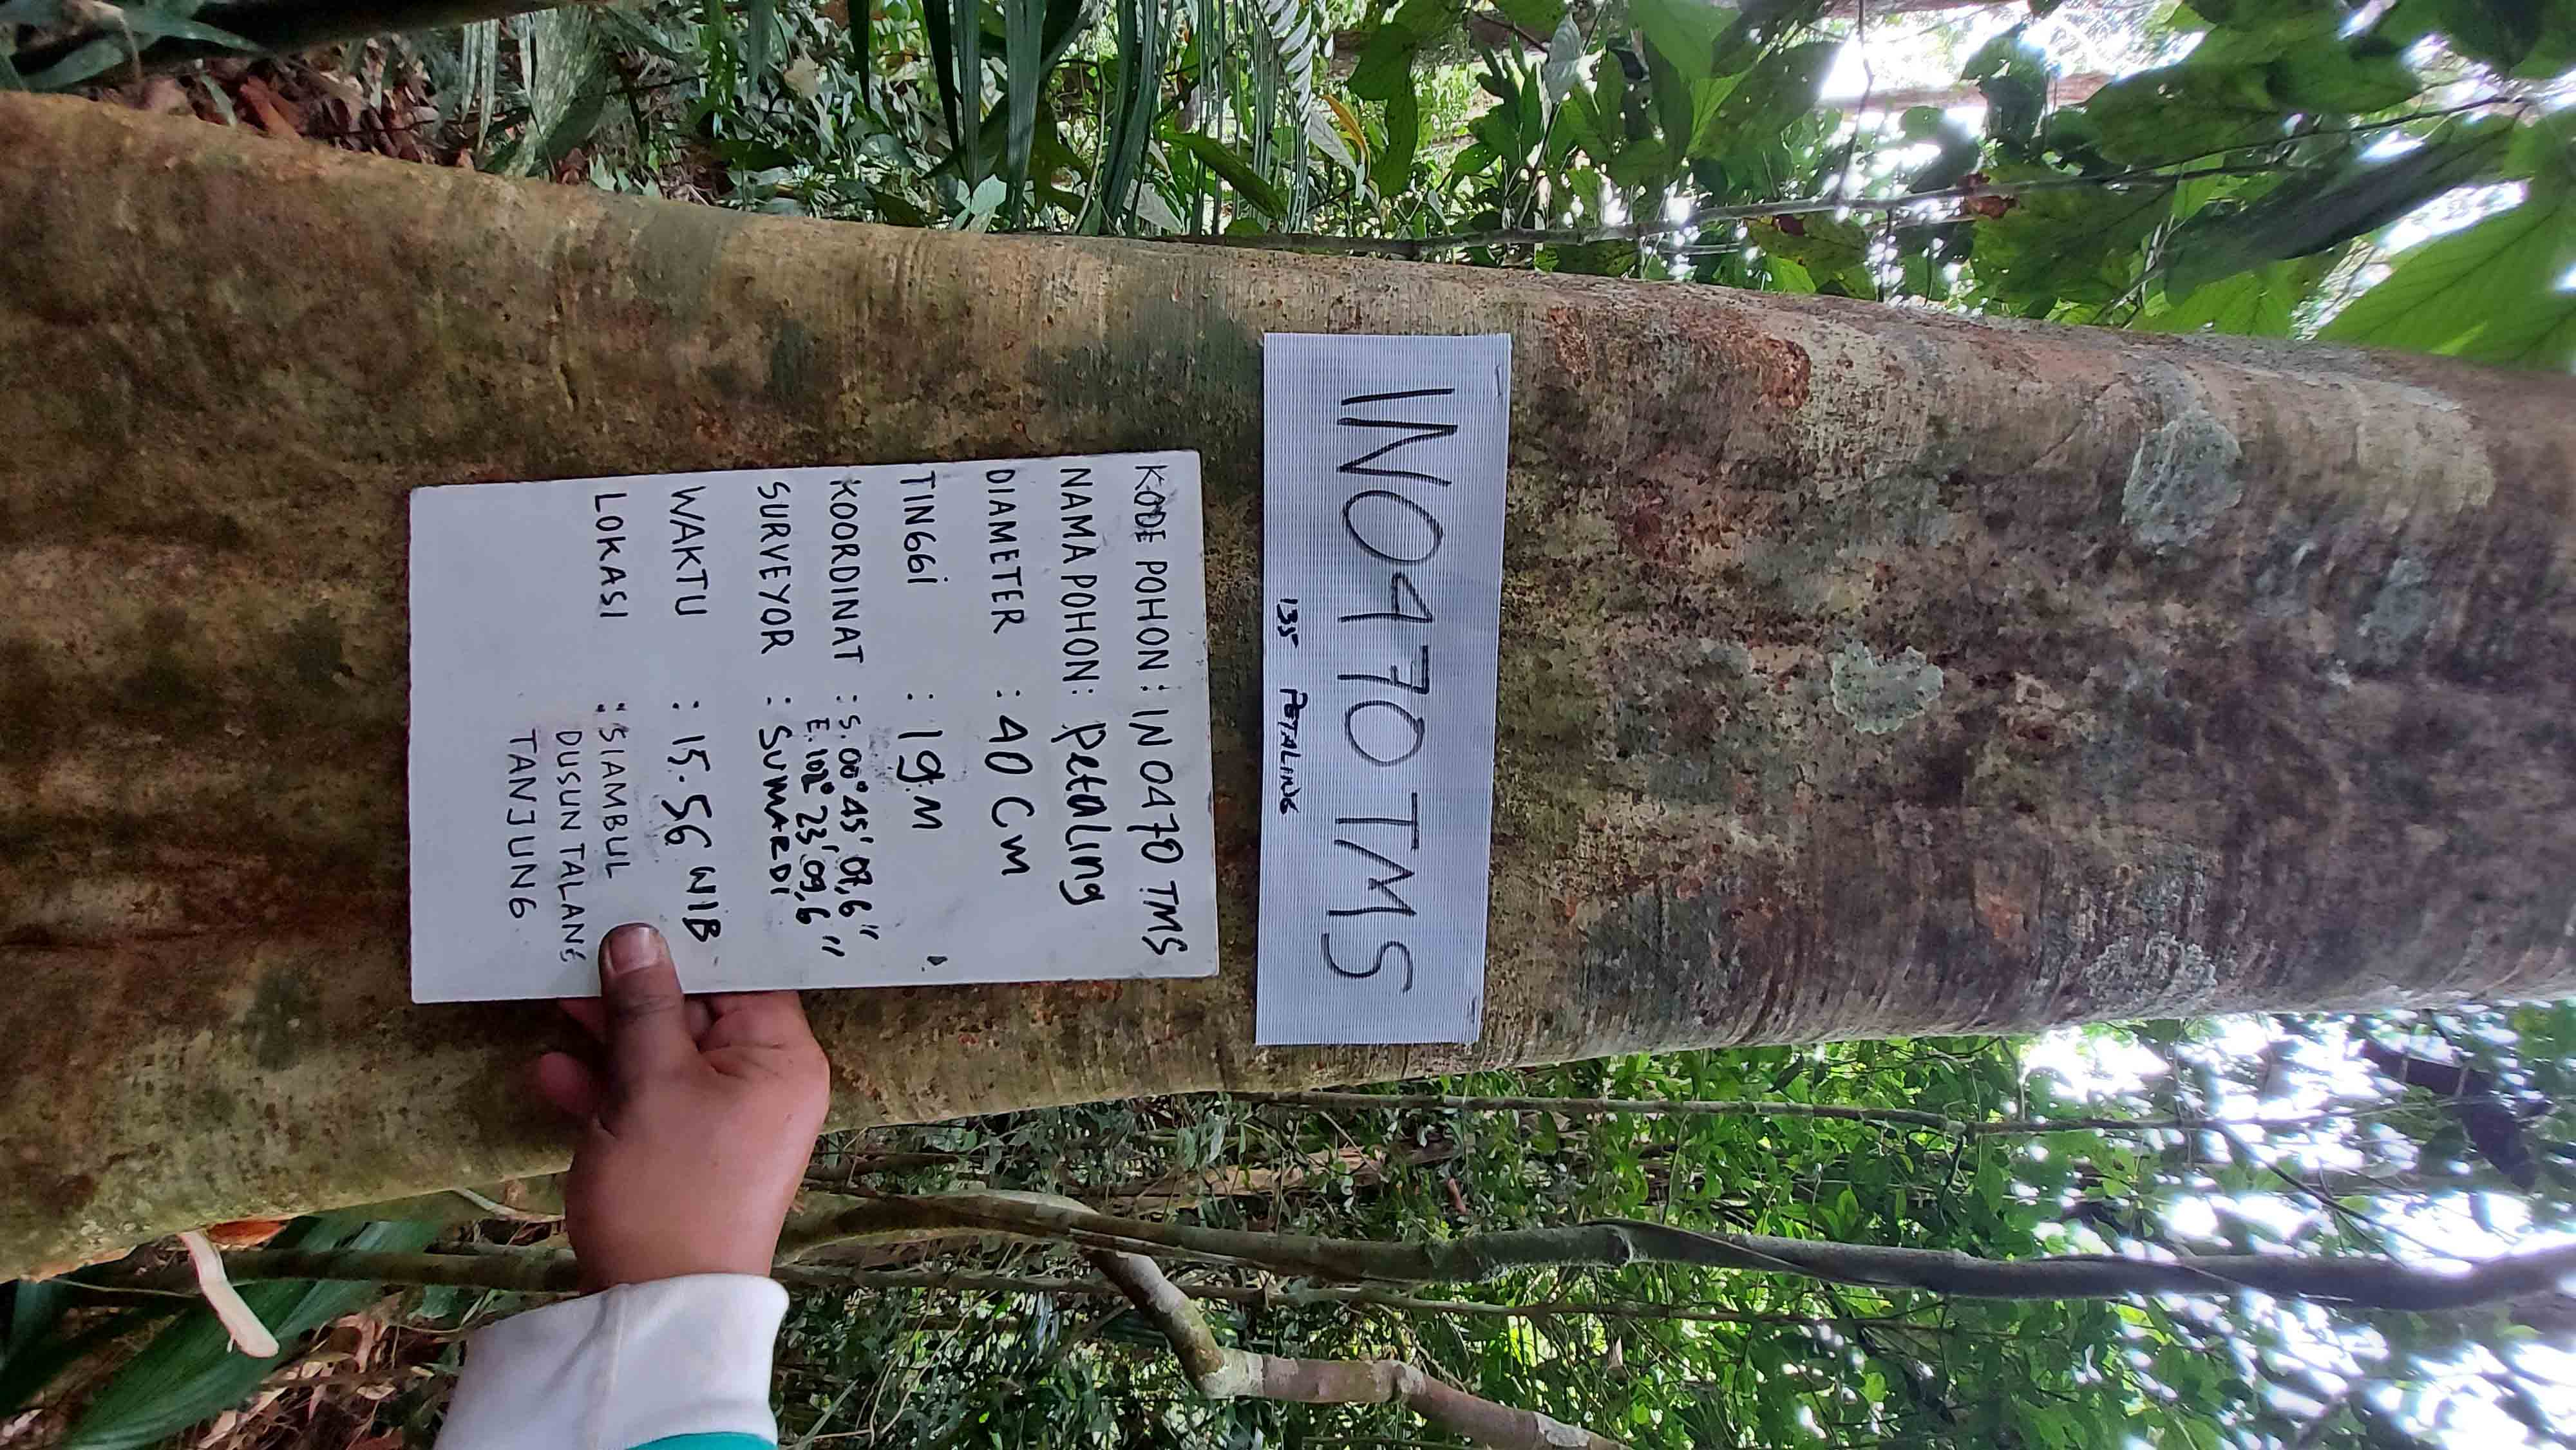 IN0470TMS
135 PETALING
KODE POHON : IN 0470 TMS
NAMA POHON : Petaling
DIAMETER : 40 Cm
TINGGi : 19 M
KOORDINAT : S. 00° 45' 07,6"
E. 102° 23' 09,6"
SURVEYOR : SUMARDI
WAKTU : 15.56 WIB
LOKASI : SIAMBUL
DUSUN TALANG
TANJUNG